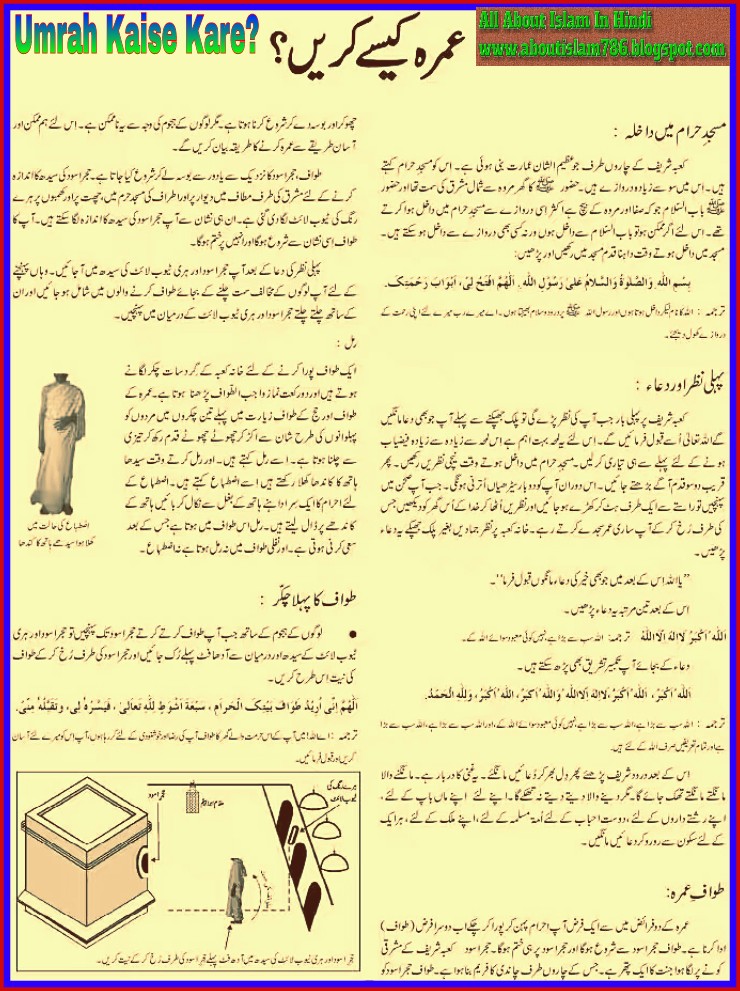 Umrah Kaise Kare?
عمرہ کیسے کریں؟
All About Islam In Hindi
www.aboutislam786.blogspot.com
مسجدِ حرام میں داخلہ :
کعبہ شریف کے چاروں طرف جو عظیم الشان عمارت بنی ہوئی ہے۔ اس کو مسجدِ حرام کہتے
ہیں۔ اس میں سو سے زیادہ دروازے ہیں۔ حضور ﷺ کا گھر مروہ سے شمال مشرق کی سمت تھا اور حضور
ﷺ باب السّلام جو کہ صفا اور مروہ کے بیچ ہے اکثر اسی دروازے سے مسجدِ حرام میں داخل ہوا کرتے
تھے۔ اس لئے اگر ممکن ہو تو باب السّلام سے داخل ہوں ورنہ کسی بھی دروازے سے داخل ہو سکتے ہیں۔
مسجد میں داخل ہوتے وقت داہنا قدم مسجد میں رکھیں اور پڑھیں:
بِسْمِ اللّٰہِ وَالصَّلٰوۃُ وَالسَّلَامُ عَلیٰ رَسُوْلِ اللّٰہِ۔ اَللّٰھُمَّ افْتَحْ لِیْ، اَبْوَابَ رَحْمَتِکَ۔
ترجمہ : اللہ کا نام لیکر داخل ہوتا ہوں اور رسول اللہ ﷺ پر درود و سلام بھیجتا ہوں۔ اے میرے رب میرے لئے اپنی رحمت کے
دروازے کھول دیجئے۔
پہلی نظر اور دعاء :
کعبہ شریف پر پہلی بار جب آپ کی نظر پڑے گی تو پلک جھپکنے سے پہلے آپ جو بھی دعاء مانگیں
گے اللہ تعالیٰ اُسے قبول فرمائیں گے۔ اس لئے یہ لمحہ بہت اہم ہے اس لمحہ سے زیادہ سے زیادہ فیضیاب
ہونے کے لئے پہلے سے ہی تیاری کر لیں۔ مسجدِ حرام میں داخل ہوتے وقت نیچی نظریں رکھیں۔ پھر
قریب دو سو قدم آگے بڑھتے جائیں۔ اس دوران آپ کو دو بار سیڑھیاں اُترنی ہونگی۔ جب آپ صحن میں
پہنچیں تو راستے سے ایک طرف ہٹ کر کھڑے ہو جائیں اور نظریں اُٹھا کر خدا کے اُس گھر کو دیکھیں جس
کی طرف رُخ کر کے آپ ساری عمر سجدے کرتے رہے۔ خانہ کعبہ پر نظر جما دیں بغیر پلک جھپکے یہ دعاء
پڑھیں۔
”یا اللہ اس کے بعد میں جو بھی خیر کی دعاء مانگوں قبول فرما“۔
اس کے بعد تین مرتبہ یہ دعاء پڑھیں۔
اَللّٰہُ اَکْبَرُ لَا اِلٰہَ اِلَّا اللّٰہُ ترجمہ: اللہ سب سے بڑا ہے، نہیں کوئی معبود سوائے اللہ کے۔
دعاء کے بجائے آپ تکبیرِ تشریق بھی پڑھ سکتے ہیں۔
اَللّٰہُ اَکْبَرُ، اَللّٰہُ اَکْبَرُ، لَا اِلٰہَ اِلَّا اللّٰہُ وَاللّٰہُ اَکْبَرُ، اَللّٰہُ اَکْبَرُ، وَلِلّٰہِ الْحَمْدُ۔
ترجمہ : اللہ سب سے بڑا ہے، اللہ سب سے بڑا ہے، نہیں کوئی معبود سوائے اللہ کے، اور اللہ سب سے بڑا ہے، اللہ سب سے بڑا
ہے اور تمام تعریفیں صرف اللہ کے لئے ہیں۔
اس کے بعد درود شریف پڑھئے پھر دل بھر کر دُعائیں مانگئے۔ یہ غنی کا دربار ہے۔ مانگنے والا
مانگتے مانگتے تھک جائے گا۔ مگر دینے والا دیتے دیتے نہ تھکے گا۔ اپنے لئے اپنے ماں باپ کے لئے،
اپنے رشتے داروں کے لئے، دوست احباب کے لئے اُمتِ مسلمہ کے لئے، اپنے ملک کے لئے، ہر ایک
کے لئے سکون سے رو رو کر دعائیں مانگیں۔
طوافِ عمرہ:
عمرہ کے دو فرائض میں سے ایک فرض آپ احرام پہن کر پورا کر چکے اب دوسرا فرض (طواف)
ادا کرنا ہے۔ طواف حجرِ اسود سے شروع ہوگا اور حجرِ اسود پر ہی ختم ہوگا۔ حجرِ اسود کعبہ شریف کے مشرقی
کونے پر لگا ہوا جنت کا ایک پتھر ہے۔ جس کے چاروں طرف چاندی کا فریم بنا ہوا ہے۔ طواف حجرِ اسود کو
چھو کر اور بوسہ دے کر شروع کرنا ہوتا ہے۔ مگر لوگوں کے ہجوم کی وجہ سے یہ ناممکن ہے۔ اس لئے ہم ممکن اور
آسان طریقے سے عمرہ کرنے کا طریقہ بیان کریں گے۔
طواف، حجرِ اسود کا نزدیک سے یا دور سے بوسہ لے کر شروع کیا جاتا ہے۔ حجرِ اسود کی سیدھ کا اندازہ
کرنے کے لئے مشرق کی طرف مطاف میں دیوار پر اور اطراف کی مسجد حرم میں، چھت پر اور کھمبوں پر ہرے
رنگ کی ٹیوب لائٹ لگا دی گئی ہے۔ ان ہی نشان سے آپ حجرِ اسود کی سیدھ کا اندازہ لگا سکتے ہیں۔ آپ کا
طواف اسی نشان سے شروع ہوگا اور انہیں پر ختم ہوگا۔
پہلی نظر کی دعا کے بعد آپ حجرِ اسود اور ہری ٹیوب لائٹ کی سیدھ میں آ جائیں۔ وہاں پہنچنے
کے لئے آپ لوگوں کے مخالف سمت چلنے کے بجائے طواف کرنے والوں میں شامل ہو جائیں اور ان
کے ساتھ چلتے چلتے حجرِ اسود اور ہری ٹیوب لائٹ کے درمیان میں پہنچیں۔
رمل :
ایک طواف پورا کرنے کے لئے خانہ کعبہ کے گرد سات چکر لگانے
ہوتے ہیں اور دو رکعت نماز واجب الطّواف پڑھنا ہوتا ہے۔ عمرہ کے
طواف اور حج کے طوافِ زیارت میں پہلے تین چکروں میں مردوں کو
پہلوانوں کی طرح شان سے اکڑ کر چھوٹے چھوٹے قدم رکھ کر تیزی
سے چلنا ہوتا ہے۔ اسے رمل کہتے ہیں۔ اور رمل کرتے وقت سیدھا
ہاتھ کا کاندھا کھلا رکھتے ہیں اسے اضطباع کہتے ہیں۔ اضطباع کے
لئے احرام کا ایک سِرا داہنے ہاتھ کے بغل سے نکال کر بائیں ہاتھ کے
کاندھے پر ڈال لیتے ہیں۔ رمل اس طواف میں ہوتا ہے جس کے بعد
سعی کرنی ہوتی ہے۔ اور نفلی طواف میں نہ رمل ہوتا ہے نہ اضطباع۔
اضطباع کی حالت میں
کھلا ہوا سیدھے ہاتھ کا کندھا
طواف کا پہلا چکّر :
● لوگوں کے ہجوم کے ساتھ جب آپ طواف کرتے کرتے حجرِ اسود تک پہنچیں تو حجرِ اسود اور ہری
ٹیوب لائٹ کے سیدھ اور درمیان سے آدھا فٹ پہلے رُک جائیں اور حجرِ اسود کی طرف رُخ کر کے طواف
کی نیت اس طرح کریں۔
اَللّٰھُمَّ اِنِّیْ اُرِیْدُ طَوَافَ بَیْتِکَ الْحَرَامِ، سَبْعَۃَ اَشْوَاطٍ لِلّٰہِ تَعَالیٰ، فَیَسِّرْہُ لِیْ، وَتَقَبَّلْہُ مِنِّیْ۔
ترجمہ : اے اللہ! میں آپ کے اس حرمت والے گھر کا طواف آپ کی رضا اور خوشنودی کے لئے کر رہا ہوں، آپ اس کو میرے لئے آسان
کریں اور قبول فرمائیں۔
ہرے رنگ کی
ٹیوب لائٹ
مقام ابراہیم
حجرِ اسود
حجرِ اسود اور ہری ٹیوب لائٹ کی سیدھ میں آدھ فٹ پہلے حجرِ اسود کی طرف رُخ کر کے نیت کریں۔